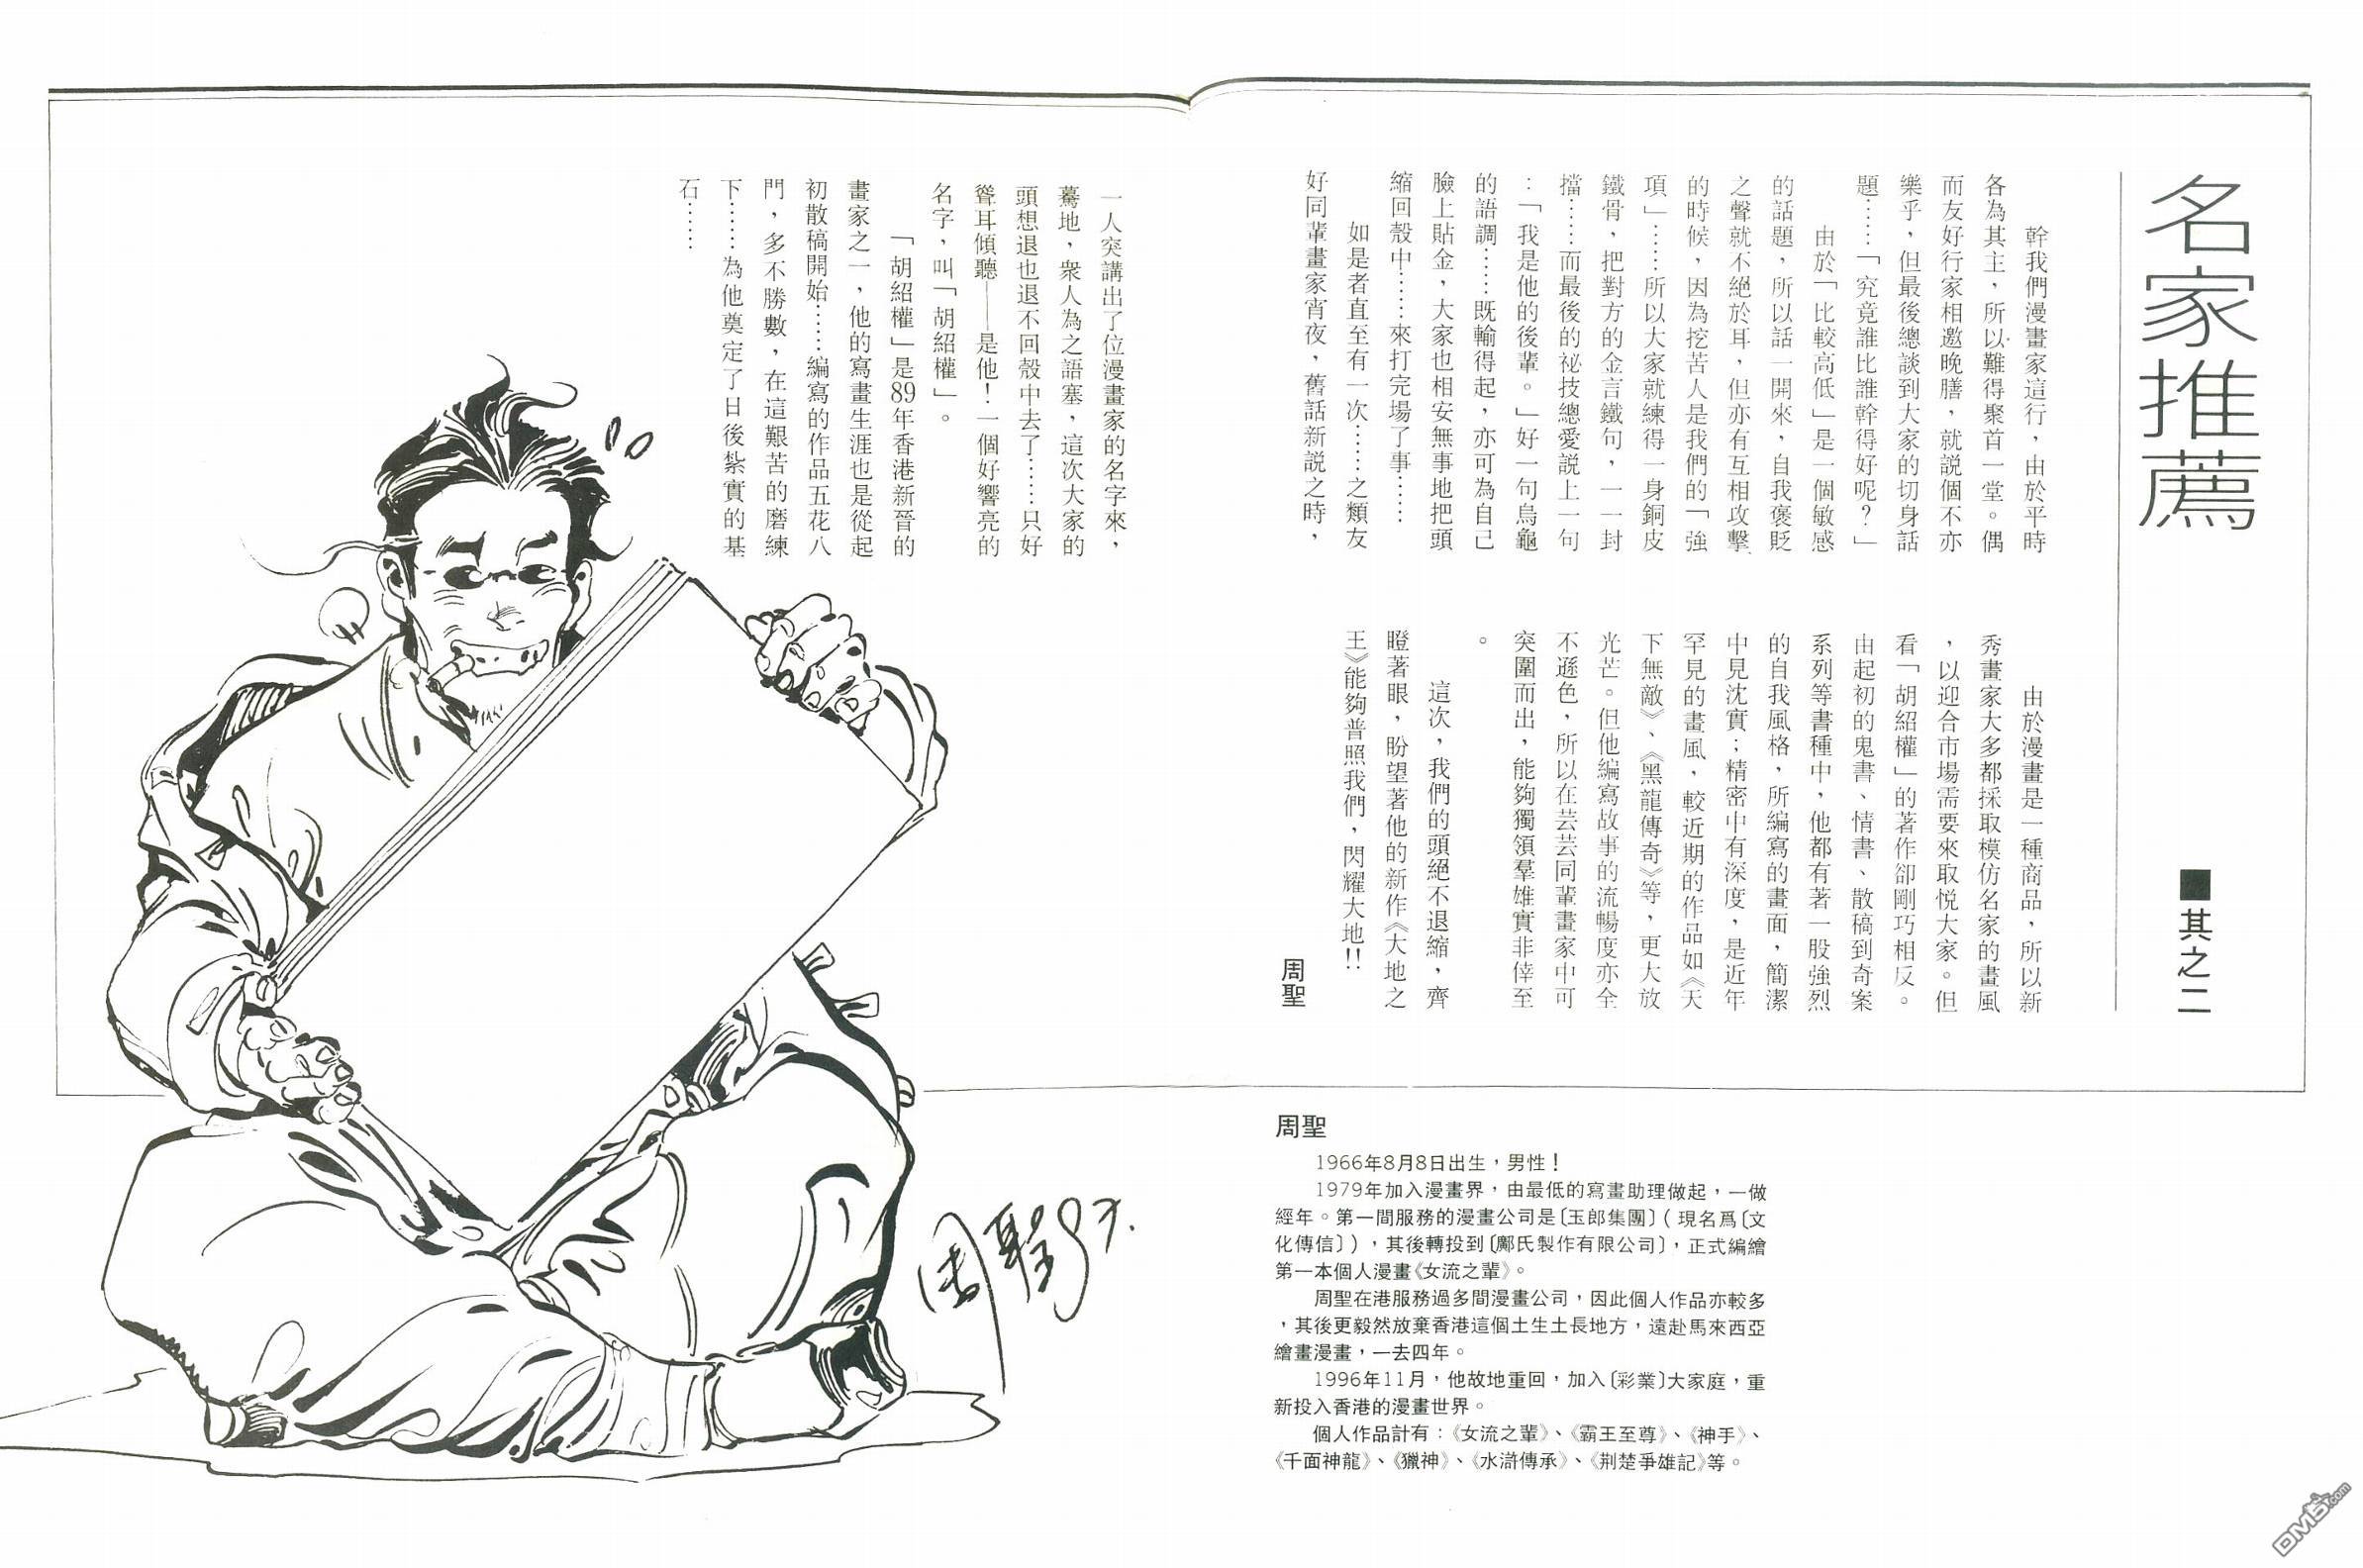 名家推薦
■其之二
幹我們漫畫家這行，由於平時
各為其主，所以難得聚首一堂。偶
而友好行家相邀晚膳，就説個不亦
樂乎，但最後總談到大家的切身話
題……「究竟誰比誰幹得好呢？」
由於「比較高低」是一個敏感
的話題，所以話一開來，自我褒貶
之聲就不絕於耳，但亦有互相攻擊
的時候，因為挖苦人是我們的「強
項」……所以大家就練得一身銅皮
鐵骨，把對方的金言鐵句，一一封
擋……而最後的祕技總愛説上一句
：「我是他的後輩。」好一句烏龜
的語調……既輸得起，亦可為自己
臉上貼金，大家也相安無事地把頭
縮回殼中……來打完場了事……
如是者直至有一次……之類友
好同輩畫家宵夜，舊話新説之時，
一人突講出了位漫畫家的名字來，
驀地，衆人為之語塞，這次大家的
頭想退也退不回殼中去了……只好
聳耳傾聽——是他！一個好響亮的
名字，叫「胡紹權」。
「胡紹權」是89年香港新晉的
畫家之一，他的寫畫生涯也是從起
初散稿開始……編寫的作品五花八
門，多不勝數，在這艱苦的磨練
下……為他奠定了日後紮實的基
石……
由於漫畫是一種商品，所以新
秀畫家大多都採取模仿名家的畫風
，以迎合市場需要來取悦大家。但
看「胡紹權」的著作卻剛巧相反。
由起初的鬼書、情書、散稿到奇案
系列等書種中，他都有著一股強烈
的自我風格，所編寫的畫面，簡潔
中見沈實；精密中有深度，是近年
罕見的畫風，較近期的作品如《天
下無敵》、《黑龍傳奇》等，更大放
光芒。但他編寫故事的流暢度亦全
不遜色，所以在芸芸同輩畫家中可
突圍而出，能夠獨領羣雄實非倖至
。
這次，我們的頭絕不退縮，齊
瞪著眼，盼望著他的新作《大地之
王》能夠普照我們，閃耀大地!!
周聖
周聖97.
周聖
1966年8月8日出生，男性！
1979年加入漫畫界，由最低的寫畫助理做起，一做
經年。第一間服務的漫畫公司是〔玉郎集團〕（現名爲〔文
化傳信〕），其後轉投到〔鄺氏製作有限公司〕，正式編繪
第一本個人漫畫《女流之輩》。
周聖在港服務過多間漫畫公司，因此個人作品亦較多
，其後更毅然放棄香港這個土生土長地方，遠赴馬來西亞
繪畫漫畫，一去四年。
1996年11月，他故地重回，加入〔彩業〕大家庭，重
新投入香港的漫畫世界。
個人作品計有：《女流之輩》、《霸王至尊》、《神手》、
《千面神龍》、《獵神》、《水滸傳承》、《荆楚爭雄記》等。
DM5.com